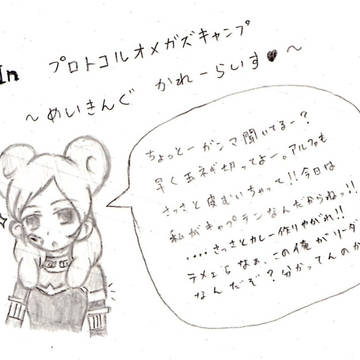 In プロトコルオメガズキャンプ
～めいきんぐ かれーらいす♥～
ちょっとーガンマ聞いてるー?
早く玉ネギ切ってよー。アルファも
さっさと皮むいちゃって!!今日は
私がキャプテンなんだからねッ!!
....さっさとカレー作りやがれ!!
テメェらなぁ、この俺がリーダ
なんだぞ?分かってんのか